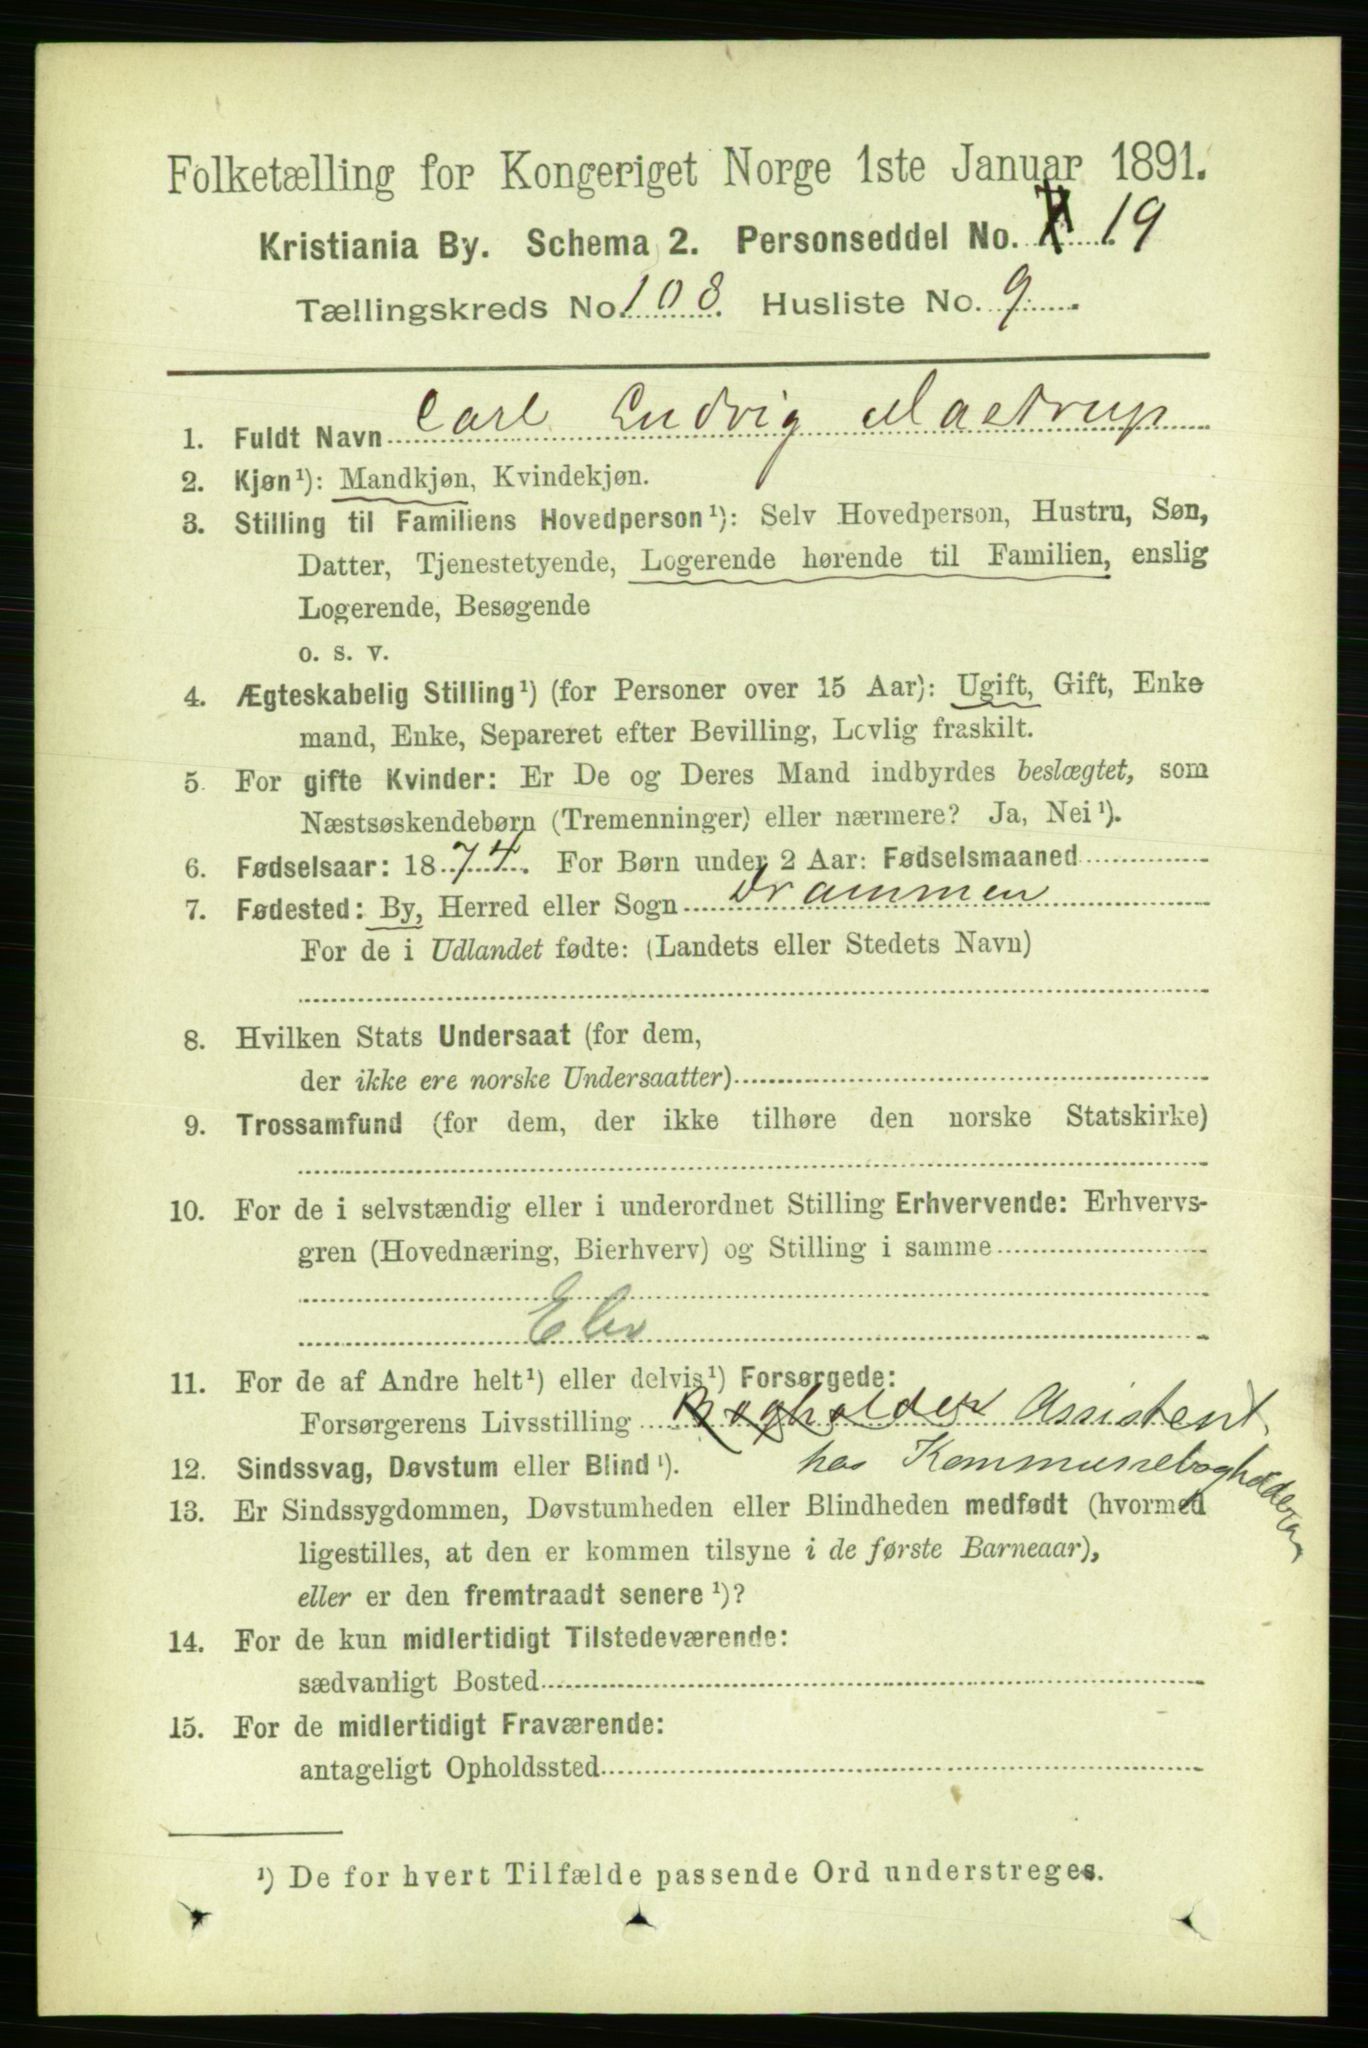 Folketælling for Kongeriget Norge 1ste Januar 1891.
Kristiania By. Schema 2. Personseddel No. 19
Tællingskreds No. 108. Husliste No. 9
1. Fuldt Navn Carl Ludvig Mastrup
2. Kjøn¹): Mandkjøn, Kvindekjøn.
3. Stilling til Familiens Hovedperson¹): Selv Hovedperson, Hustru, Søn,
Datter, Tjenestetyende, Logerende hørende til Familien, enslig
Logerende, Besøgende
o. s. v.
4. Ægteskabelig Stilling¹) (for Personer over 15 Aar): Ugift, Gift, Enke-
mand, Enke, Separeret efter Bevilling, Lovlig fraskilt.
5. For gifte Kvinder: Er De og Deres Mand indbyrdes beslægtet, som
Næstsøskendebørn (Tremenninger) eller nærmere? Ja, Nei¹).
6. Fødselsaar: 1874. For Børn under 2 Aar: Fødselsmaaned
7. Fødested: By, Herred eller Sogn Drammen
For de i Udlandet fødte: (Landets eller Stedets Navn)
8. Hvilken Stats Undersaat (for dem,
der ikke ere norske Undersaatter)
9. Trossamfund (for dem, der ikke tilhøre den norske Statskirke)
10. For de i selvstændig eller i underordnet Stilling Erhvervende: Erhvervs-
gren (Hovednæring, Bierhverv) og Stilling i samme
Elev
11. For de af Andre helt¹) eller delvis¹) Forsørgede:
Forsørgerens Livsstilling Bogholder Assistent
hos Kommunebogholderen
12. Sindssvag, Døvstum eller Blind¹).
13. Er Sindssygdommen, Døvstumheden eller Blindheden medfødt (hvormed
ligestilles, at den er kommen tilsyne i de første Barneaar),
eller er den fremtraadt senere¹)?
14. For de kun midlertidigt Tilstedeværende:
sædvanligt Bosted
15. For de midlertidigt Fraværende:
antageligt Opholdssted
¹) De for hvert Tilfælde passende Ord understreges.